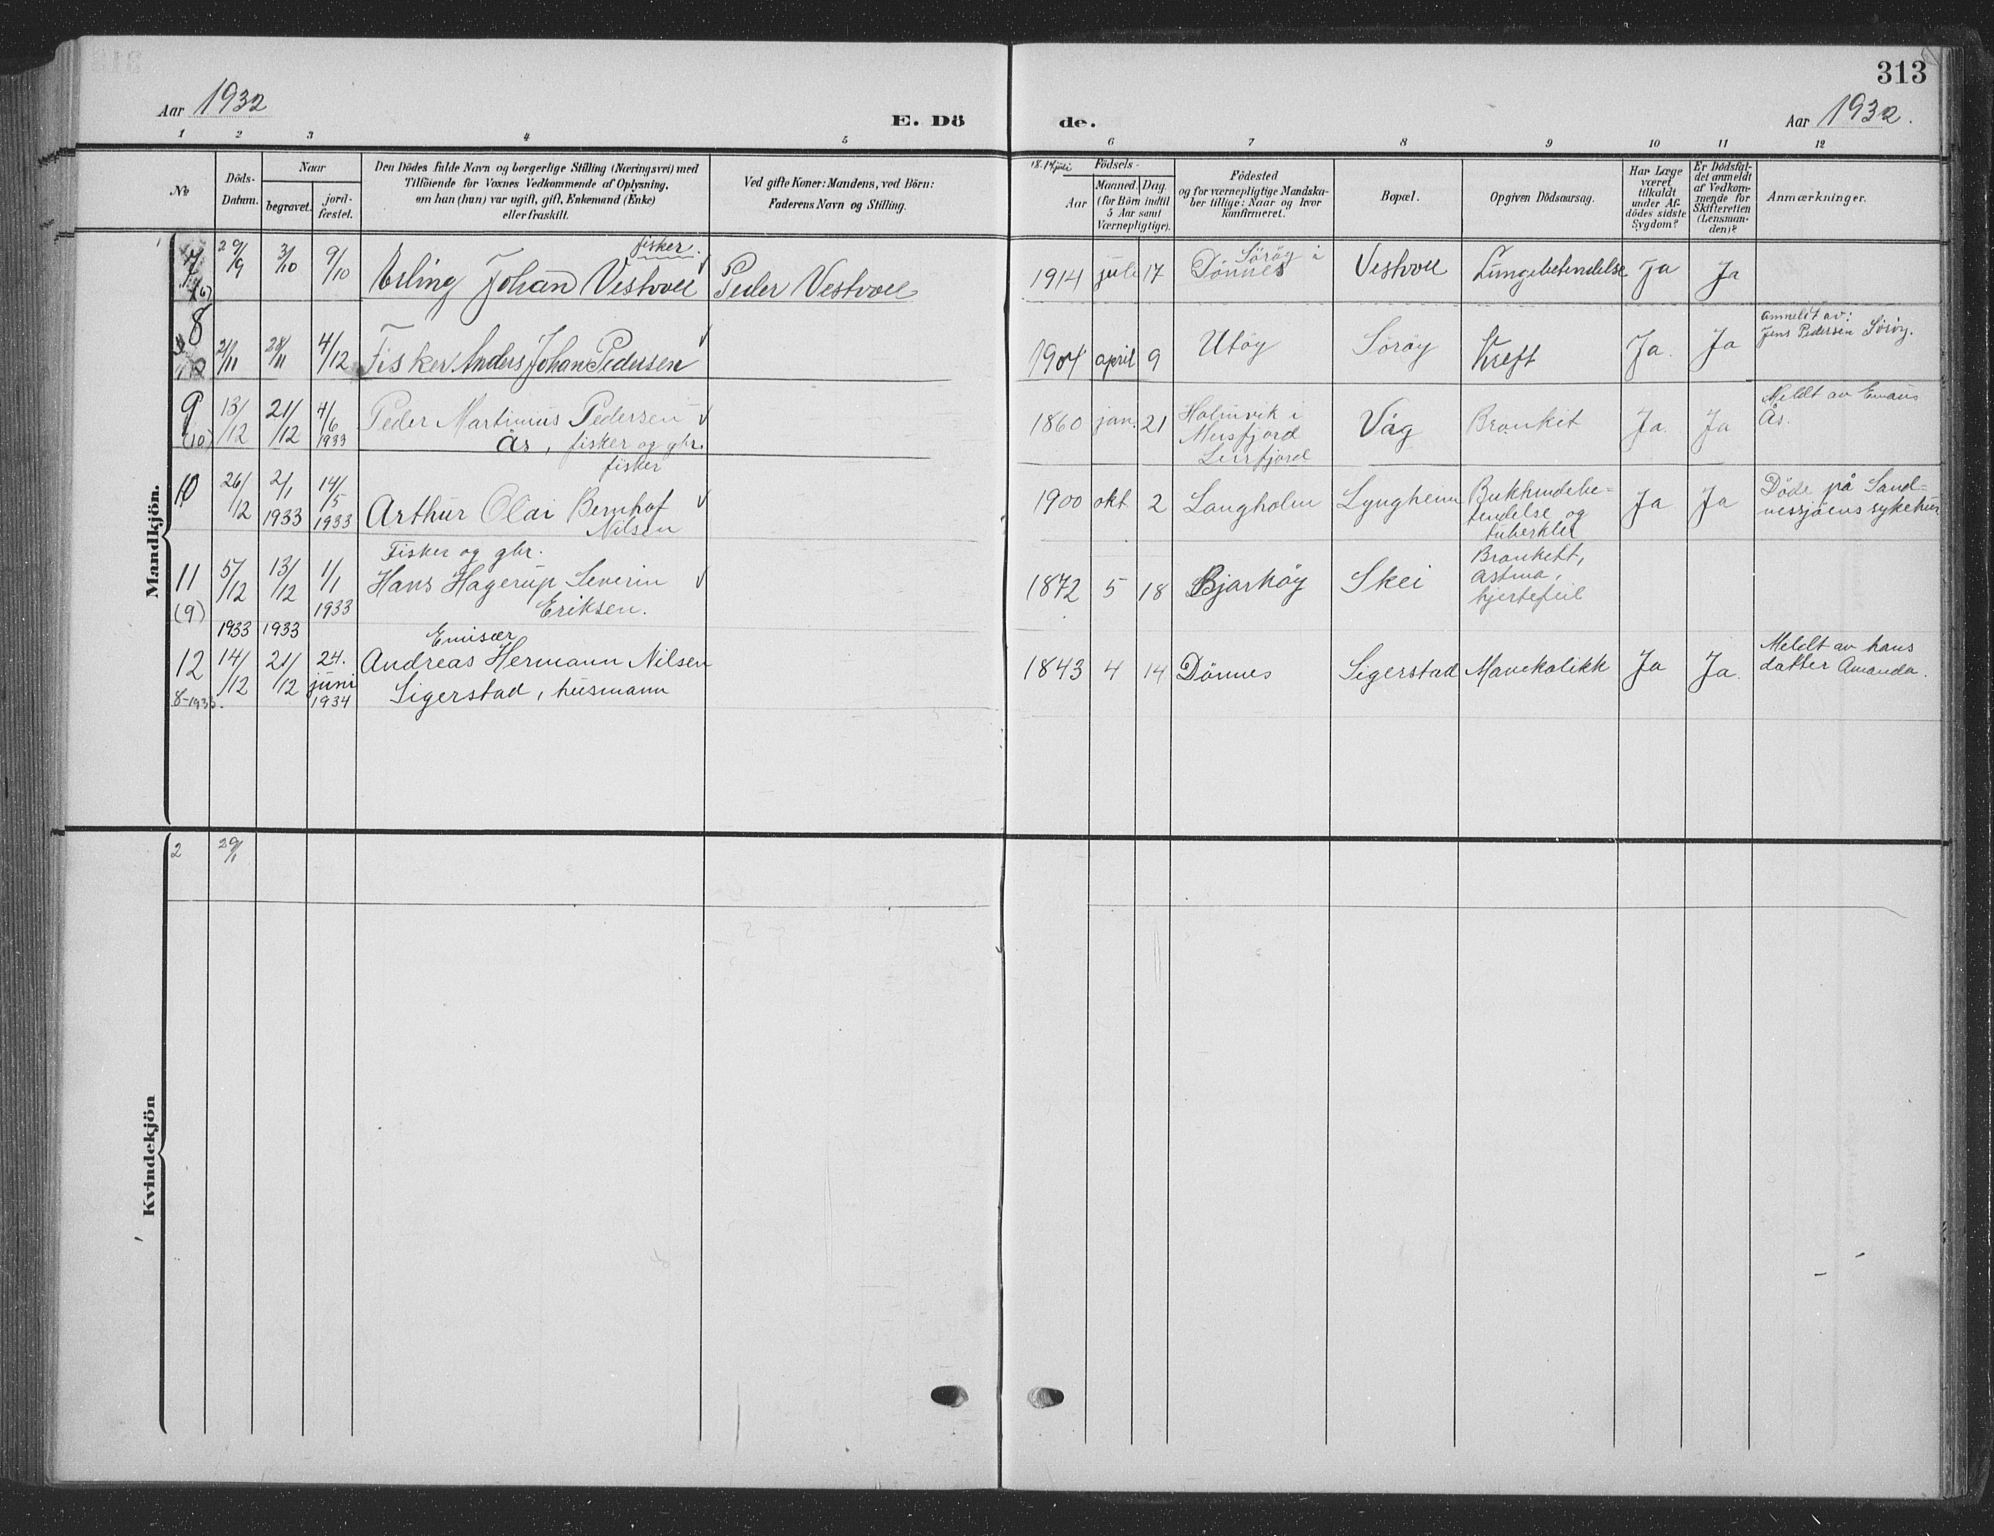 313
Aar 1932
E. Dö
de.
Aar 1932.
1 2 3 4 5 6 7 8 9 10 11 12
No
Döds-
Datum.
Naar
begravet.
jord-
fæstet.
Den Dödes fulde Navn og borgerlige Stilling (Næringsvei) med
Tilföiende for Voxnes Vedkommende af Oplysning,
om han (hun) var ugift, gift, Enkemand (Enke)
eller fraskilt.
Ved gifte Koner: Mandens, ved Börn:
Faderens Navn og Stilling.
Födsels-
Aar
Maaned.
Dag.
(for Börn indtil
5 Aar samt
Værnepligtige).
Födested
og for værnepligtige Mandska-
ber tillige: Naar og hvor
konfirmeret.
Bopæl.
Opgiven Dödsaarsag.
Har Læge
været
tilkaldt
under Af-
dödes sidste
Sygdom?
Er Dödsfal-
det anmeldt
af Vedkom-
mende for
Skifteretten
(Lensman-
den)?
Anmærkninger.
Mandkjön.
7 29/9 3/10 9/10 fisker.
Erling Johan Vestvoll Peder Vestvoll 1914 juli 17 Sörøy i
Dönnes Vestvoll Lungebetendelse Ja Ja
8 21/11 28/11 4/12 Fisker Anders Johan Pedersen 1904 april 9 Utöy Sörøy Kreft Ja. Ja anmeldt av:
Jens Pedersen Sörøy.
9 (10) 13/12 21/12 4/6 1933 Peder Martinius Pedersen
Ås, fisker og gbr. 1860 jan. 21 Holmvik i
Meisfjord
Leirfjord Våg Bronkit Ja. Ja Meldt av
Ås.
10 26/12 2/1 1933 14/5 1933 fisker
Arthur Olai Bernhof
Nilsen 1900 okt 2 Langholm Lyngheim Bukhindebe-
tendelse og
tuberkler Ja Ja Döde på Sand-
nessjøens sykehus
11 (9) 5/12 13/12 1/1 1933 Fisker og gbr.
Hans Hagerup Severin
Eriksen. 1872 5 18 Bjarköy Skei Bronkitt,
astma,
hjertefeil
12 1933 14/12 1933 21/12 24. juni 1934 Emisær
Andreas Hermann Nilsen
Sigerstad, husmann 1843 4 14 Dönnes Sigerstad Mavekolikk Ja Ja. Meldt av hans
datter Amanda.
Kvindekjön
2 29/1